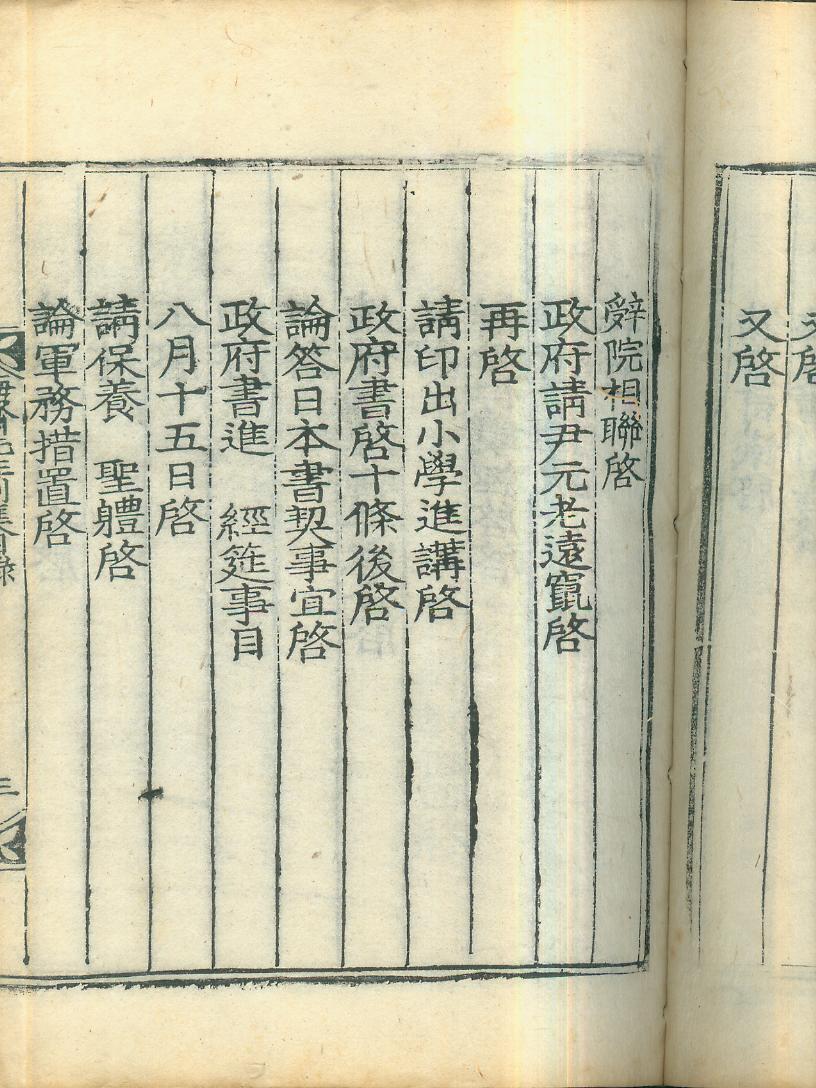 又啓
又啓
辭院相聯啓
政府請尹元老遠竄啓
再啓
請印出小學進講啓
政府書啓十條後啓
論答日本書契事宜啓
政府書進　經筵事目
八月十五日啓
請保養　聖體啓
論軍務措置啓
三